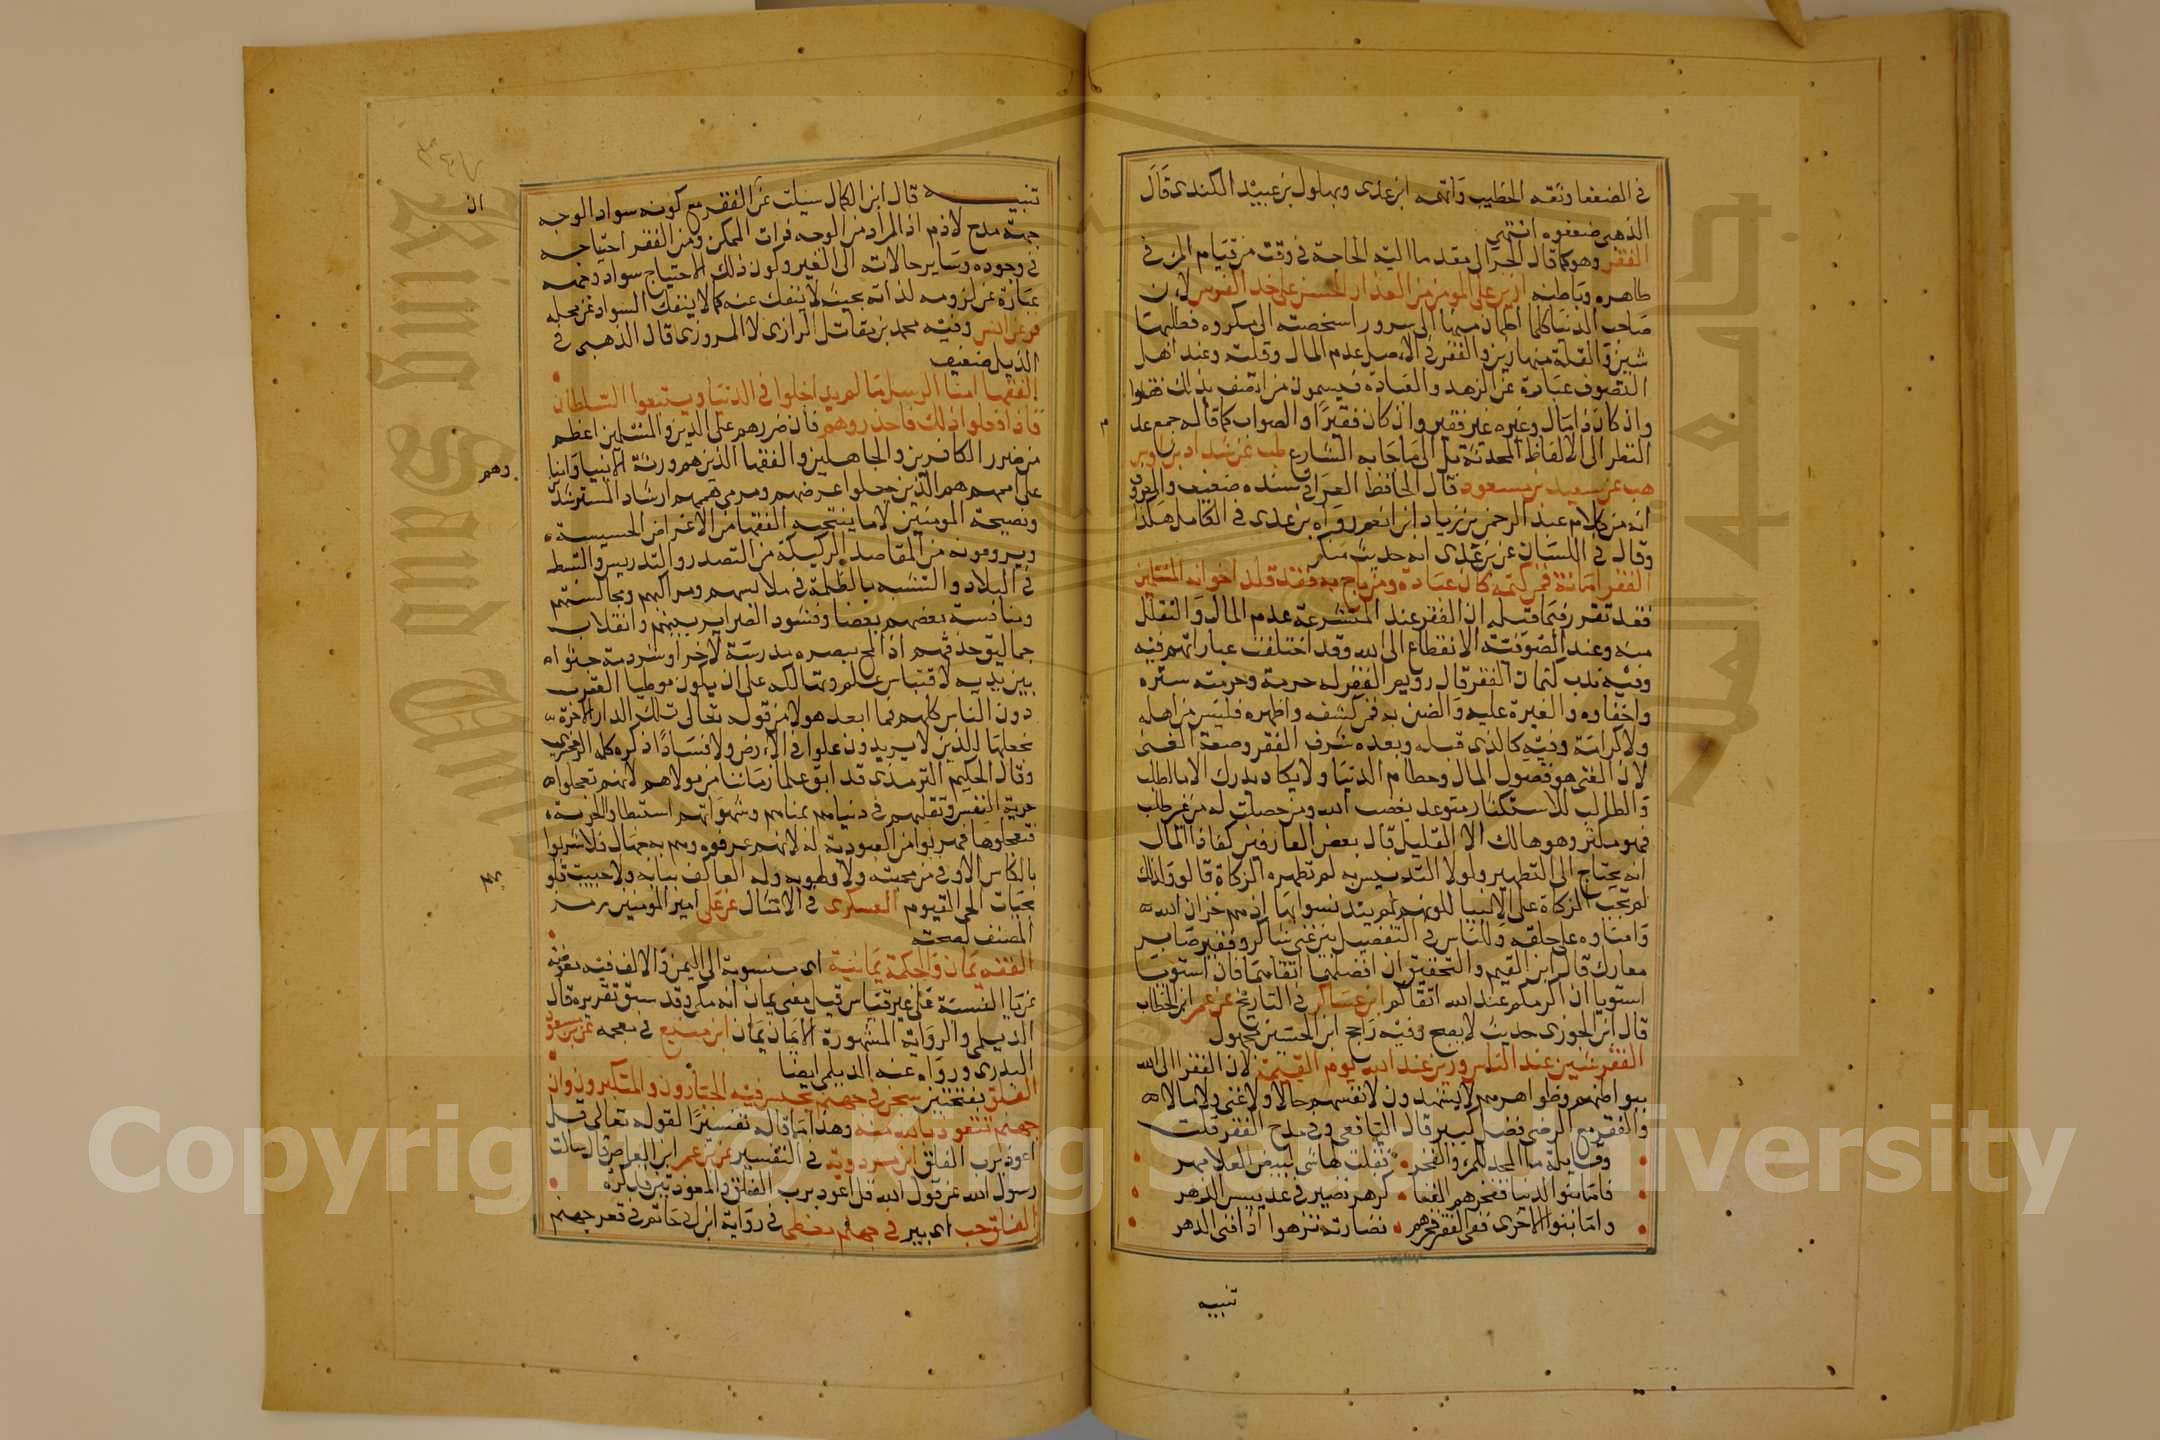 في الضعفا وثقه الخطيب واتهمه ابن عدى وبهلول بن عبيد الكندى قال
الذهبى ضعفوه انتهى
الفقر وهو كما قال الحرالى فقد ما اليه الحاجة في وقت من قيام المرء في
ظاهره وباطنه ازين على المومن من العذار الحسن على خد الفرس لان
صاحب الدنيا كلما اطمان منها الى سرور اشخصته الى مكروه فطلبها
شين والقلة منها زين والفقر في الاصل عدم المال وقلته وعند اهل
التصوف عبارة عن الزهد والعبادة فيسمون من اتصف بذلك فقيرا
وان كان ذا مال وغيره غير فقير وان كان فقيرًا والصواب كما قاله جمع عدم
النظر الى الالفاظ المحدثة بل الى ما جا به الشارع طب عن شداد بن اوس
هب عن سعيد بن مسعود قال الحافظ العراقى سنده ضعيف والمعروف
انه من كلام عبد الرحمن بن زياد ابن انعم رواه بن عدى في الكامل هكذا
وقال في اللسان عن بن عدى انه حديث منكر
الفقر امانة فمن كتمه كان عبادة ومن باح به فقد قلد اخوانه المسلمين
فقد تقرر فيما قبله ان الفقر عند المتشرعة عدم المال والتقلل
منه وعند الصوفية الانقطاع الى الله وقد اختلفت عباراتهم فيه
وفيه ندب كتمان الفقر قال رويم الفقر له حرمة وحرمته ستره
واخفاوه والغيرة عليه والضن به فمن كشفه واظهره فليس من اهله
ولا كرامة وفيه كالذى قبله وبعده شرف الفقر وضعة الغنى
لان الغنى هو فضول المال وحطام الدنيا ولا يكاد يدرك الا بالطلب
والطالب للاستكثار متوعد بغضب الله ومن حصلت له من غير طلب
فهو مكثر وهو هالك الا القليل قال بعض العارفين كفا ذا المال
انه يحتاج الى التطهير ولولا التدنيس به لم تطهره الزكاة قالو ولذلك
لم تجب الزكاة على الانبيا للونهم لم يتدنسوا بها اذ هم خزان الله
وامناوه على خلقه وللناس في التفضيل بين غنى شاكر وفقير صابر
معارك قال ابن القيم والتحقيق ان افضلهما اتقاهما فان استويا
استويا ان اكرمكم عند الله اتقاكم ابن عساكر في التاريخ عن عمر ابن الخطاب
قال ابن الجوزى حديث لا يصح وفيه راجح ابن الحسين مجهول
الفقر شين عند الناس وزين عند الله يوم القيمة لان الفقرا الى الله
ببواطنهم وظواهرهم لا يشهدون لانفسهم حالا ولا غنى ولا مالا
والفقر مع الرضى فضل كبير قال اليافعى وفي مدح الفقر قلت
وقايلة ما المجد للمرء والفخر فقلت لها شى لبيض العلا مهر
فاما بنوا الدنيا ففخرهم الغنا كزهر نضير في غد ييبس الزهر
واما بنوا الاخرى ففي الفقر فخرهم نضارته تزهوا اذا فنى الدهر
تنبيه
تنبيه قال ابن الكمال سيلت عن الفقر مع كونه سواد الوجه
جهة مدح لازم اذ المراد من الوجه ذات الممكن ومن الفقر احتياجه
في وجوده وساير حالاته الى الغير وكون ذلك الاحتياج سواد وجهه
عبارة عن لزومه لذاته بحيث لا ينفك عنه كما لا ينفك السواد عن محله
فر عن انس وفيه محمد بن مقاتل الرازى لا المروزى قال الذهبى في
الذيل ضعيف
الفقها امنا الرسل ما لم يدخلوا في الدنيا ويتبعوا السلطان
فاذا فعلوا ذلك فاحذروهم فان ضررهم على الدين والمسلمين اعظم
من ضرر الكافرين والجاهلين والفقها الذين هم ورثة الانبيا وامنا
على اممهم هم الذين جعلوا غرضهم ومرمى هممهم ارشاد المسترشدين
ونصيحة المومنين لا ما ينتحيه الفقها من الاغراض الخسيسة
ويرومونه من المقاصد الركيكة من التصدر والتدريس والتبسط
في البلاد والتشبه بالظلمة في ملابسهم ومراكبهم ومجالستهم
ومنافسة بعضهم بعضا وفشو د الضراير بينهم وانقلاب
حماليق حدقهم اذا لمح ببصره مدرسة لاخر او شرذمة جثوا
بين يديه لاقتباس علم وتهالكه على ان يكون موطيا العقب
دون الناس كلهم فما ابعد هولا من قوله تعالى تلك الدار الاخرة
نجعلها للذين لا يريدون علوا في الارض ولا فسادًا ذكره كله الزمخشرى
وقال الحكيم الترمذى قد ابق علما زماننا من مولاهم لانهم تعجلوا
حرية النفس وتقلبهم في دنياهم بمناهم وشهواتهم استبطا والحرية
فتعجلوها فهربوا من العبودية له لانهم عرفوه وهم به جهال فلا شربوا
بالكاس الاوفى من محبته ولا وطوبه وله العاكف ببابه ولا حييت قلو
بحيات الحى القيوم العسكرى في الامثال عن على امير المومنين رمز
المصنف لصحته
الفقه يمان والحكمة يمانية اى منسوبة الى اليمن والالف فيه معوضة
عن يا النسبة على غير قياس قيل معنى يمان انه مكى وقد سبق تقريره قال
الديلمى والرواية المشهورة الايمان يمان ابن منيع في معجمه عن بن مسعود
البدرى ورواه عنه الديلمى ايضا
الفلق بفتحتين سجن في جهنم يحبس فيه الجبارون والمتكبرون وان
جهنم لتتعوذ بالله منه وهذا ما قاله تفسيرًا لقوله تعالى قل
اعوذ برب الفلق ابن مردوية في التفسير عن بن عمر ابن العاص قال سالت
رسول الله عن قول الله قل اعوذ برب الفلق والمعوذتين قبل ذكره
الفلق جب اى بير في جهنم مغطى في رواية ابن ابى حاتم في قعر جهنم
ان
وهم
بهم
Copyright © King Saud University
King Saud University
جامعة الملك سعود
1957